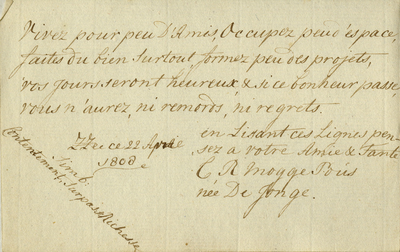 Vivez pour peu D'Amis, Occupez peu d'espace,
faites du bien surtout, formez peu des projets,
vos jours seront heureux, & si ce bonheur passe,
vous n'aurez, ni remords, ni regrets.
ZZee ce 22 Avril
1808
en Lisant ces Lignes pen-
sez a votre Amie & Tante
C R Mogge
née De Jonge.
Simb:
Contentement, Surpasse Richesse